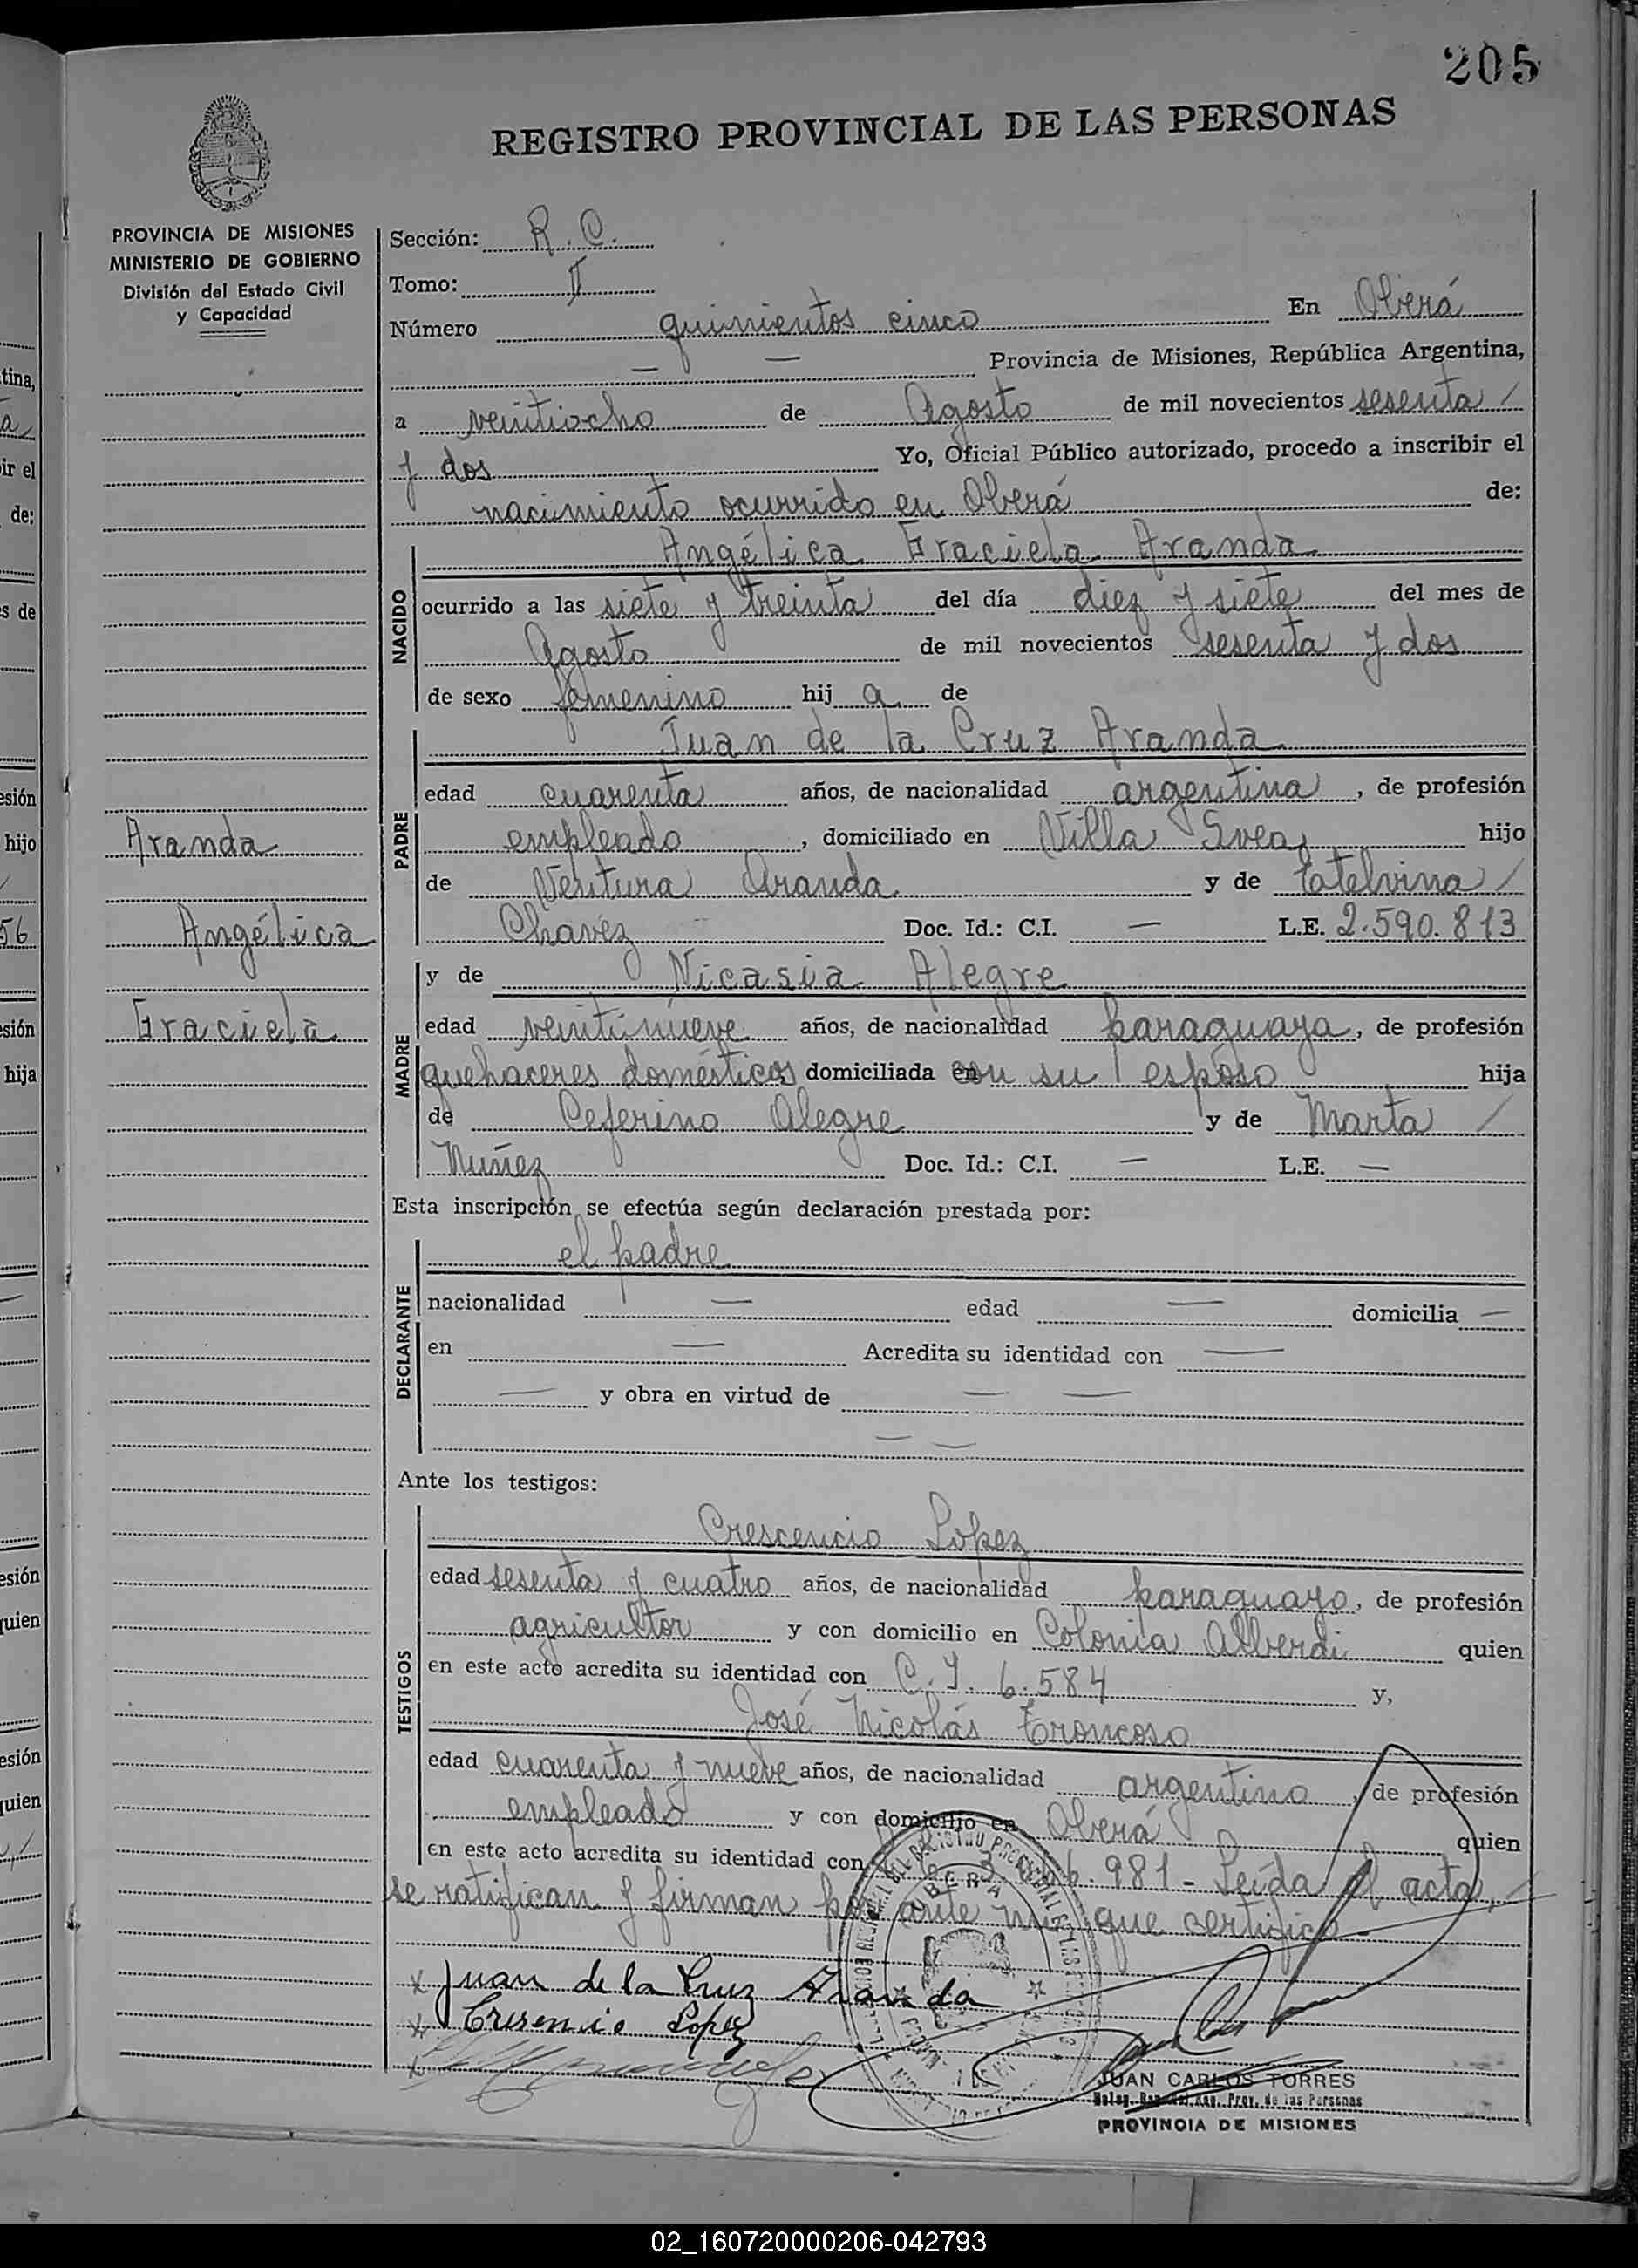 205
REGISTRO PROVINCIAL DE LAS PERSONAS
PROVINCIA DE MISIONES
MINISTERIO DE GOBIERNO
División del Estado Civil
y Capacidad
Sección: R. C.
Tomo: II
Número quinientos cinco En Oberá
— — Provincia de Misiones, República Argentina,
a veintiocho de Agosto de mil novecientos sesenta /
y dos Yo, Oficial Público autorizado, procedo a inscribir el
nacimiento ocurrido en Oberá de:
NACIDO
Angélica Graciela Aranda
ocurrido a las siete y treinta del día diez y siete del mes de
Agosto de mil novecientos sesenta y dos
de sexo femenino hij a de
PADRE
Juan de la Cruz Aranda
edad cuarenta años, de nacionalidad argentina, de profesión
empleado, domiciliado en Villa Svea, hijo
de Ventura Aranda y de Etelvina /
Chavez Doc. Id.: C.I. — L.E. 2.590.813
Aranda
Angélica
Graciela
MADRE
y de Nicasia Alegre
edad veintinueve años, de nacionalidad paraguaya, de profesión
quehaceres domésticos domiciliada con su esposo hija
de Ceferino Alegre y de Marta /
Nuñez Doc. Id.: C.I. — L.E. —
Esta inscripción se efectúa según declaración prestada por:
DECLARANTE
el padre
nacionalidad — edad — domicilia —
en — Acredita su identidad con —
— y obra en virtud de — —
— —
Ante los testigos:
TESTIGOS
Crescencio Lopez
edad sesenta y cuatro años, de nacionalidad paraguayo, de profesión
agricultor y con domicilio en Colonia Alberdi quien
en este acto acredita su identidad con C.I. 6.584 y,
José Nicolás Troncoso
edad cuarenta y nueve años, de nacionalidad argentino, de profesión
empleado y con domicilio en Oberá quien
en este acto acredita su identidad con 6.981 - Leída el acta, /
se ratifican y firman por ante mí que certifico -
x Juan de la Cruz Aranda
x Cresencio Lopez
x
JUAN CARLOS TORRES
Prov. de las Personas
PROVINCIA DE MISIONES
02_160720000206-042793